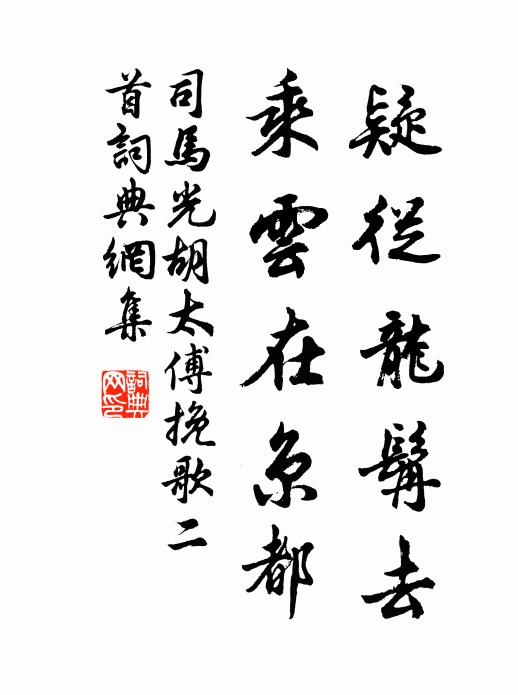 疑從龍髯去
乘雲在京都
司馬光胡太傅挽歌二
首詞典網集
詞典
网印